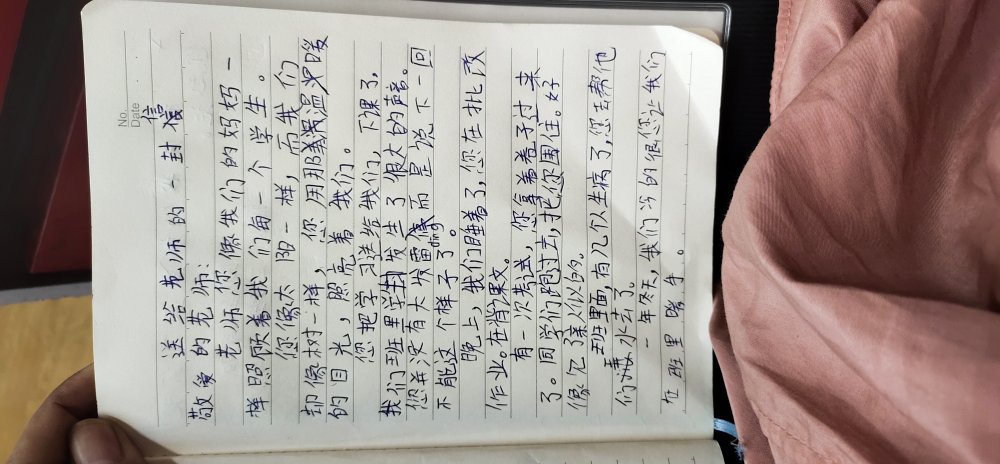 No.
Date
送给老师的一封信
敬爱的老师:
老师,您像我们的妈妈一
样照顾着我们每一个学生。
您像太阳一样,而我们
却像树一样,您用那满温暖
的目光,照亮着我们。
您把学习送给我们,下课了,
我们班里学生发生了很大的声音。
您并没有大发雷而是说下一回
不能这个样子了。
晚上,我们睡着了,您在批改
作业。在背课文。
有一次考试,您拿着卷子过来
了。同学们跑过去,把你围住。好
像亿了亲人似的。
班里面,有几个人生病了,您去帮他
们弄水去了。
一年冬天,我们冷的很您让我们
在班里暖手。